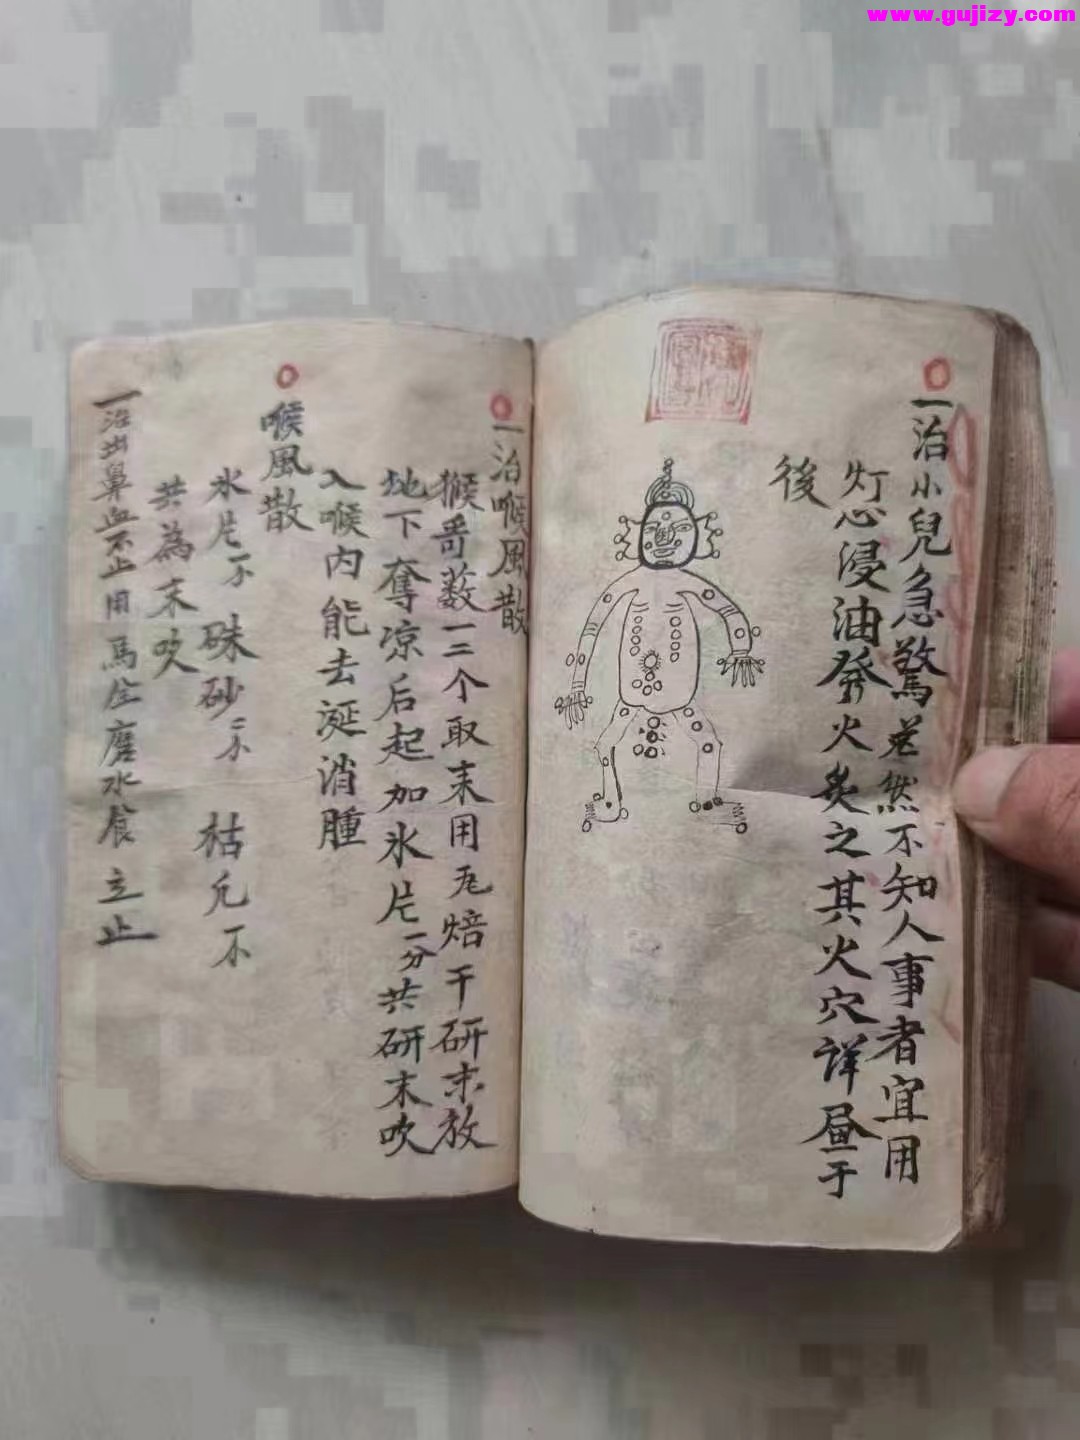 www.gujizy.com
一治小兒急驚忽然不知人事者宜用
灯心浸油發火炙之其火穴詳畫于
後
一治喉風散
猴哥薮一二个取末用瓦焙干研末放
地下奪凉后起加氷片一分共研末吹
入喉内能去涎消腫
喉風散
氷片 硃砂 枯凡
共為末吹
一治出鼻血不止用馬 磨水食立止